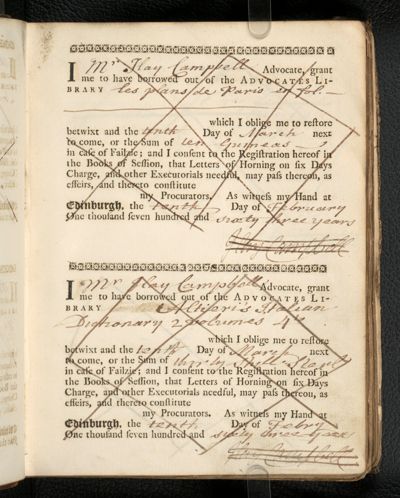 I Mr Ilay Campbell Advocate, grant
me to have borrowed out of the ADVOCATES LI-
BRARY les plans de Paris en fol. —
which I oblige me to restore
betwixt and the tenth Day of March next
to come, or the Sum of ten Guineas —
in case of Failzie; and I consent to the Registration hereof in
the Books of Session, that Letters of Horning on six Days
Charge, and other Executorials needful, may pass thereon, as
effeirs, and thereto constitute
my Procurators. As witness my Hand at
Edinburgh, the tenth Day of February
One thousand seven hundred and sixty three years
Ilay Campbell
I Mr Ilay Campbell Advocate, grant
me to have borrowed out of the ADVOCATES LI-
BRARY Altieri's Italian
Dictionary 2 volumes 4to
which I oblige me to restore
betwixt and the tenth Day of March next
to come, or the Sum of thirty
in case of Failzie; and I consent to the Registration hereof in
the Books of Session, that Letters of Horning on six Days
Charge, and other Executorials needful, may pass thereon, as
effeirs, and thereto constitute
my Procurators. As witness my Hand at
Edinburgh, the tenth Day of Febry
One thousand seven hundred and sixty three years
Ilay Campbell